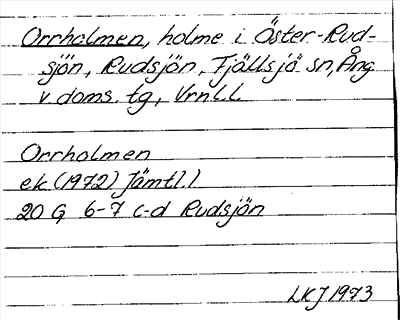 Orrholmen, holme i Öster-Rud-
sjön, Rudsjön, Fjällsjö sn, Ång
v. doms. tg, Vrnl.l.
Orrholmen
ek (1972) Jämtl. l
20 G 6-7 c-d Rudsjön
LKJ 1973